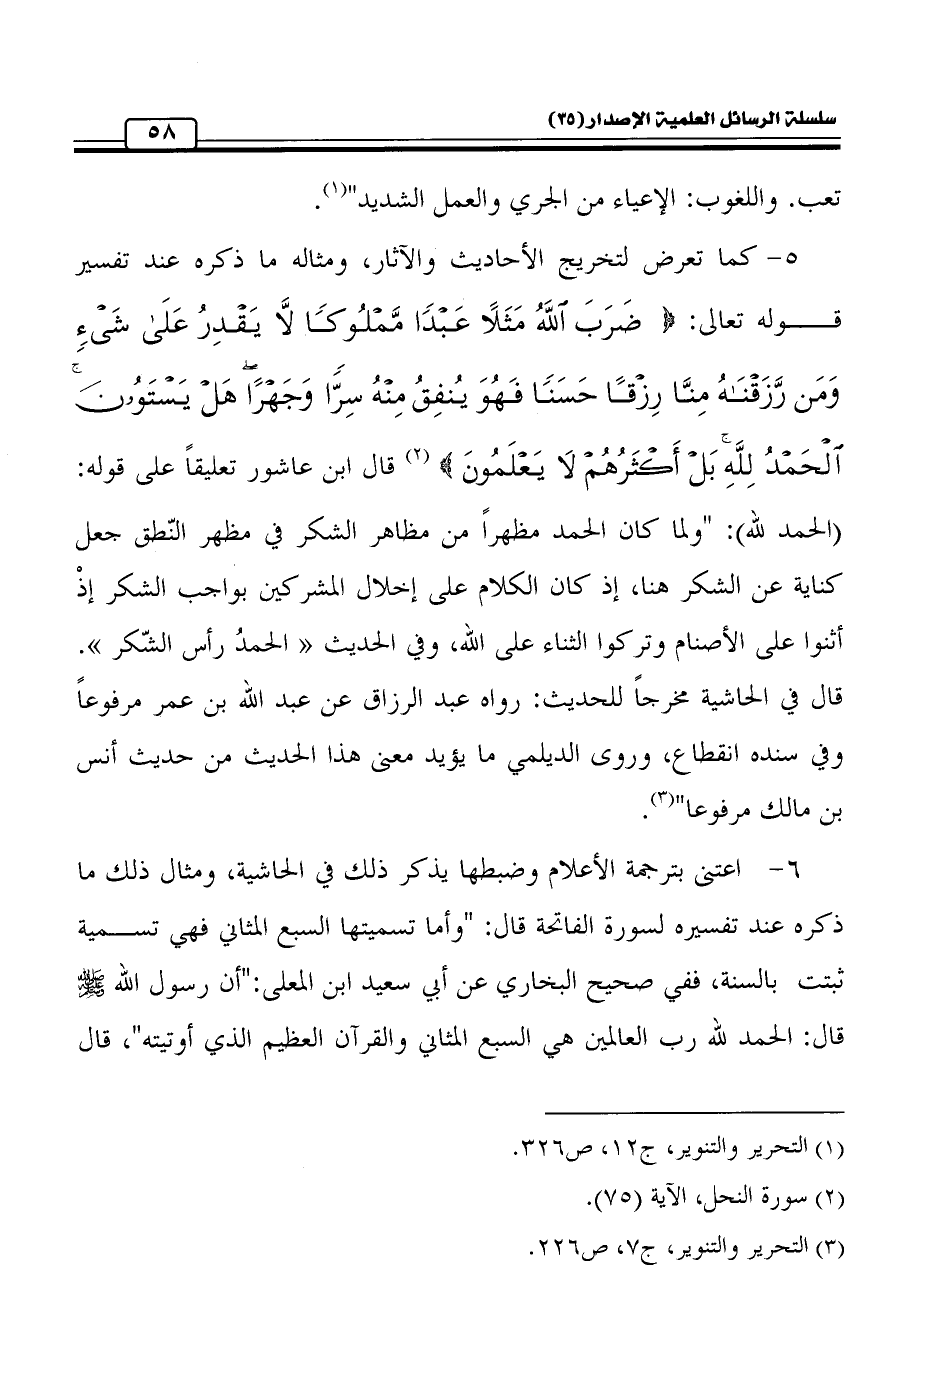 سلسلة الرسائل العلمية الإصدار(٣٥)
٥٨
تعب. واللغوب: الإعياء من الجري والعمل الشديد"(١).
٥- كما تعرض لتخريج الأحاديث والآثار، ومثاله ما ذكره عند تفسير
قـــوله تعالى: ﴿ ضَرَبَ ٱللَّهُ مَثَلًا عَبْدًا مَّمْلُوكًا لَّا يَقْدِرُ عَلَىٰ شَىْءٍ
وَمَن رَّزَقْنَـٰهُ مِنَّا رِزْقًا حَسَنًا فَهُوَ يُنفِقُ مِنْهُ سِرًّا وَجَهْرًا ۖ هَلْ يَسْتَوُۥنَ ۚ
ٱلْحَمْدُ لِلَّهِ ۚ بَلْ أَكْثَرُهُمْ لَا يَعْلَمُونَ ﴾ (٢) قال ابن عاشور تعليقاً على قوله:
(الحمد لله): "ولما كان الحمد مظهراً من مظاهر الشكر في مظهر النّطق جعل
كناية عن الشكر هنا، إذ كان الكلام على إخلال المشركين بواجب الشكر إذْ
أثنوا على الأصنام وتركوا الثناء على الله، وفي الحديث « الحمدُ رأس الشّكر ».
قال في الحاشية مخرجاً للحديث: رواه عبد الرزاق عن عبد الله بن عمر مرفوعاً
وفي سنده انقطاع، وروى الديلمي ما يؤيد معنى هذا الحديث من حديث أنس
بن مالك مرفوعا"(٣).
٦- اعتنى بترجمة الأعلام وضبطها يذكر ذلك في الحاشية، ومثال ذلك ما
ذكره عند تفسيره لسورة الفاتحة قال: "وأما تسميتها السبع المثاني فهي تســمية
ثبتت بالسنة، ففي صحيح البخاري عن أبي سعيد ابن المعلى:"أن رسول الله ﷺ
قال: الحمد لله رب العالمين هي السبع المثاني والقرآن العظيم الذي أوتيته"، قال
(١) التحرير والتنوير، ج١٢، ص٣٢٦.
(٢) سورة النحل، الآية (٧٥).
(٣) التحرير والتنوير، ج٧، ص٢٢٦.